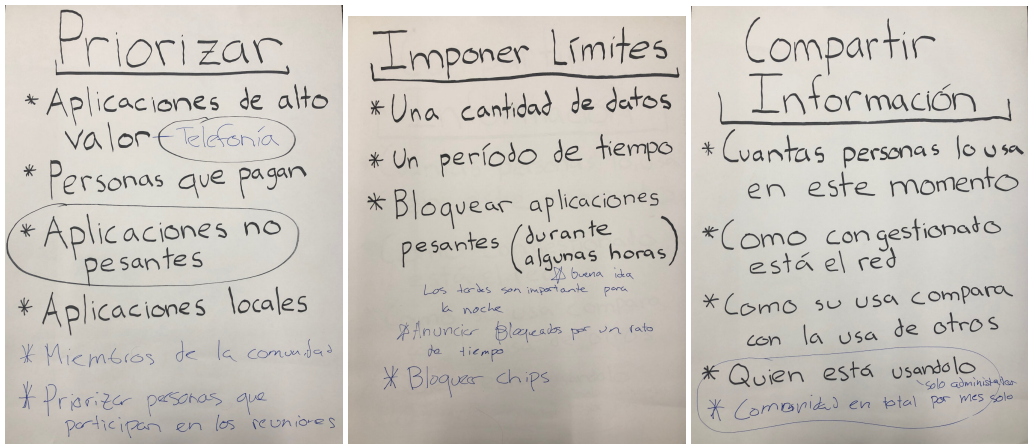 Priorizar
* Aplicaciones de alto
valor - Telefonía
* Personas que pagan
* Aplicaciones no
pesantes
* Aplicaciones locales
* Miembros de la comunidad
* Priorizar personas que
participan en los reuniones
Imponer Límites
* Una cantidad de datos
* Un período de tiempo
* Bloquear aplicaciones
pesantes (durante
algunas horas)
* buena idea
Los tardes son importante para
la noche
* Anunciar Bloqueados por un rato
de tiempo
* Bloquear chips
Compartir
Información
* Cuantas personas lo usa
en este momento
* Como congestionado
está el red
* Como su usa compara
con la usa de otros
* Quien está usandolo
solo
* Comunidad en total por mes solo